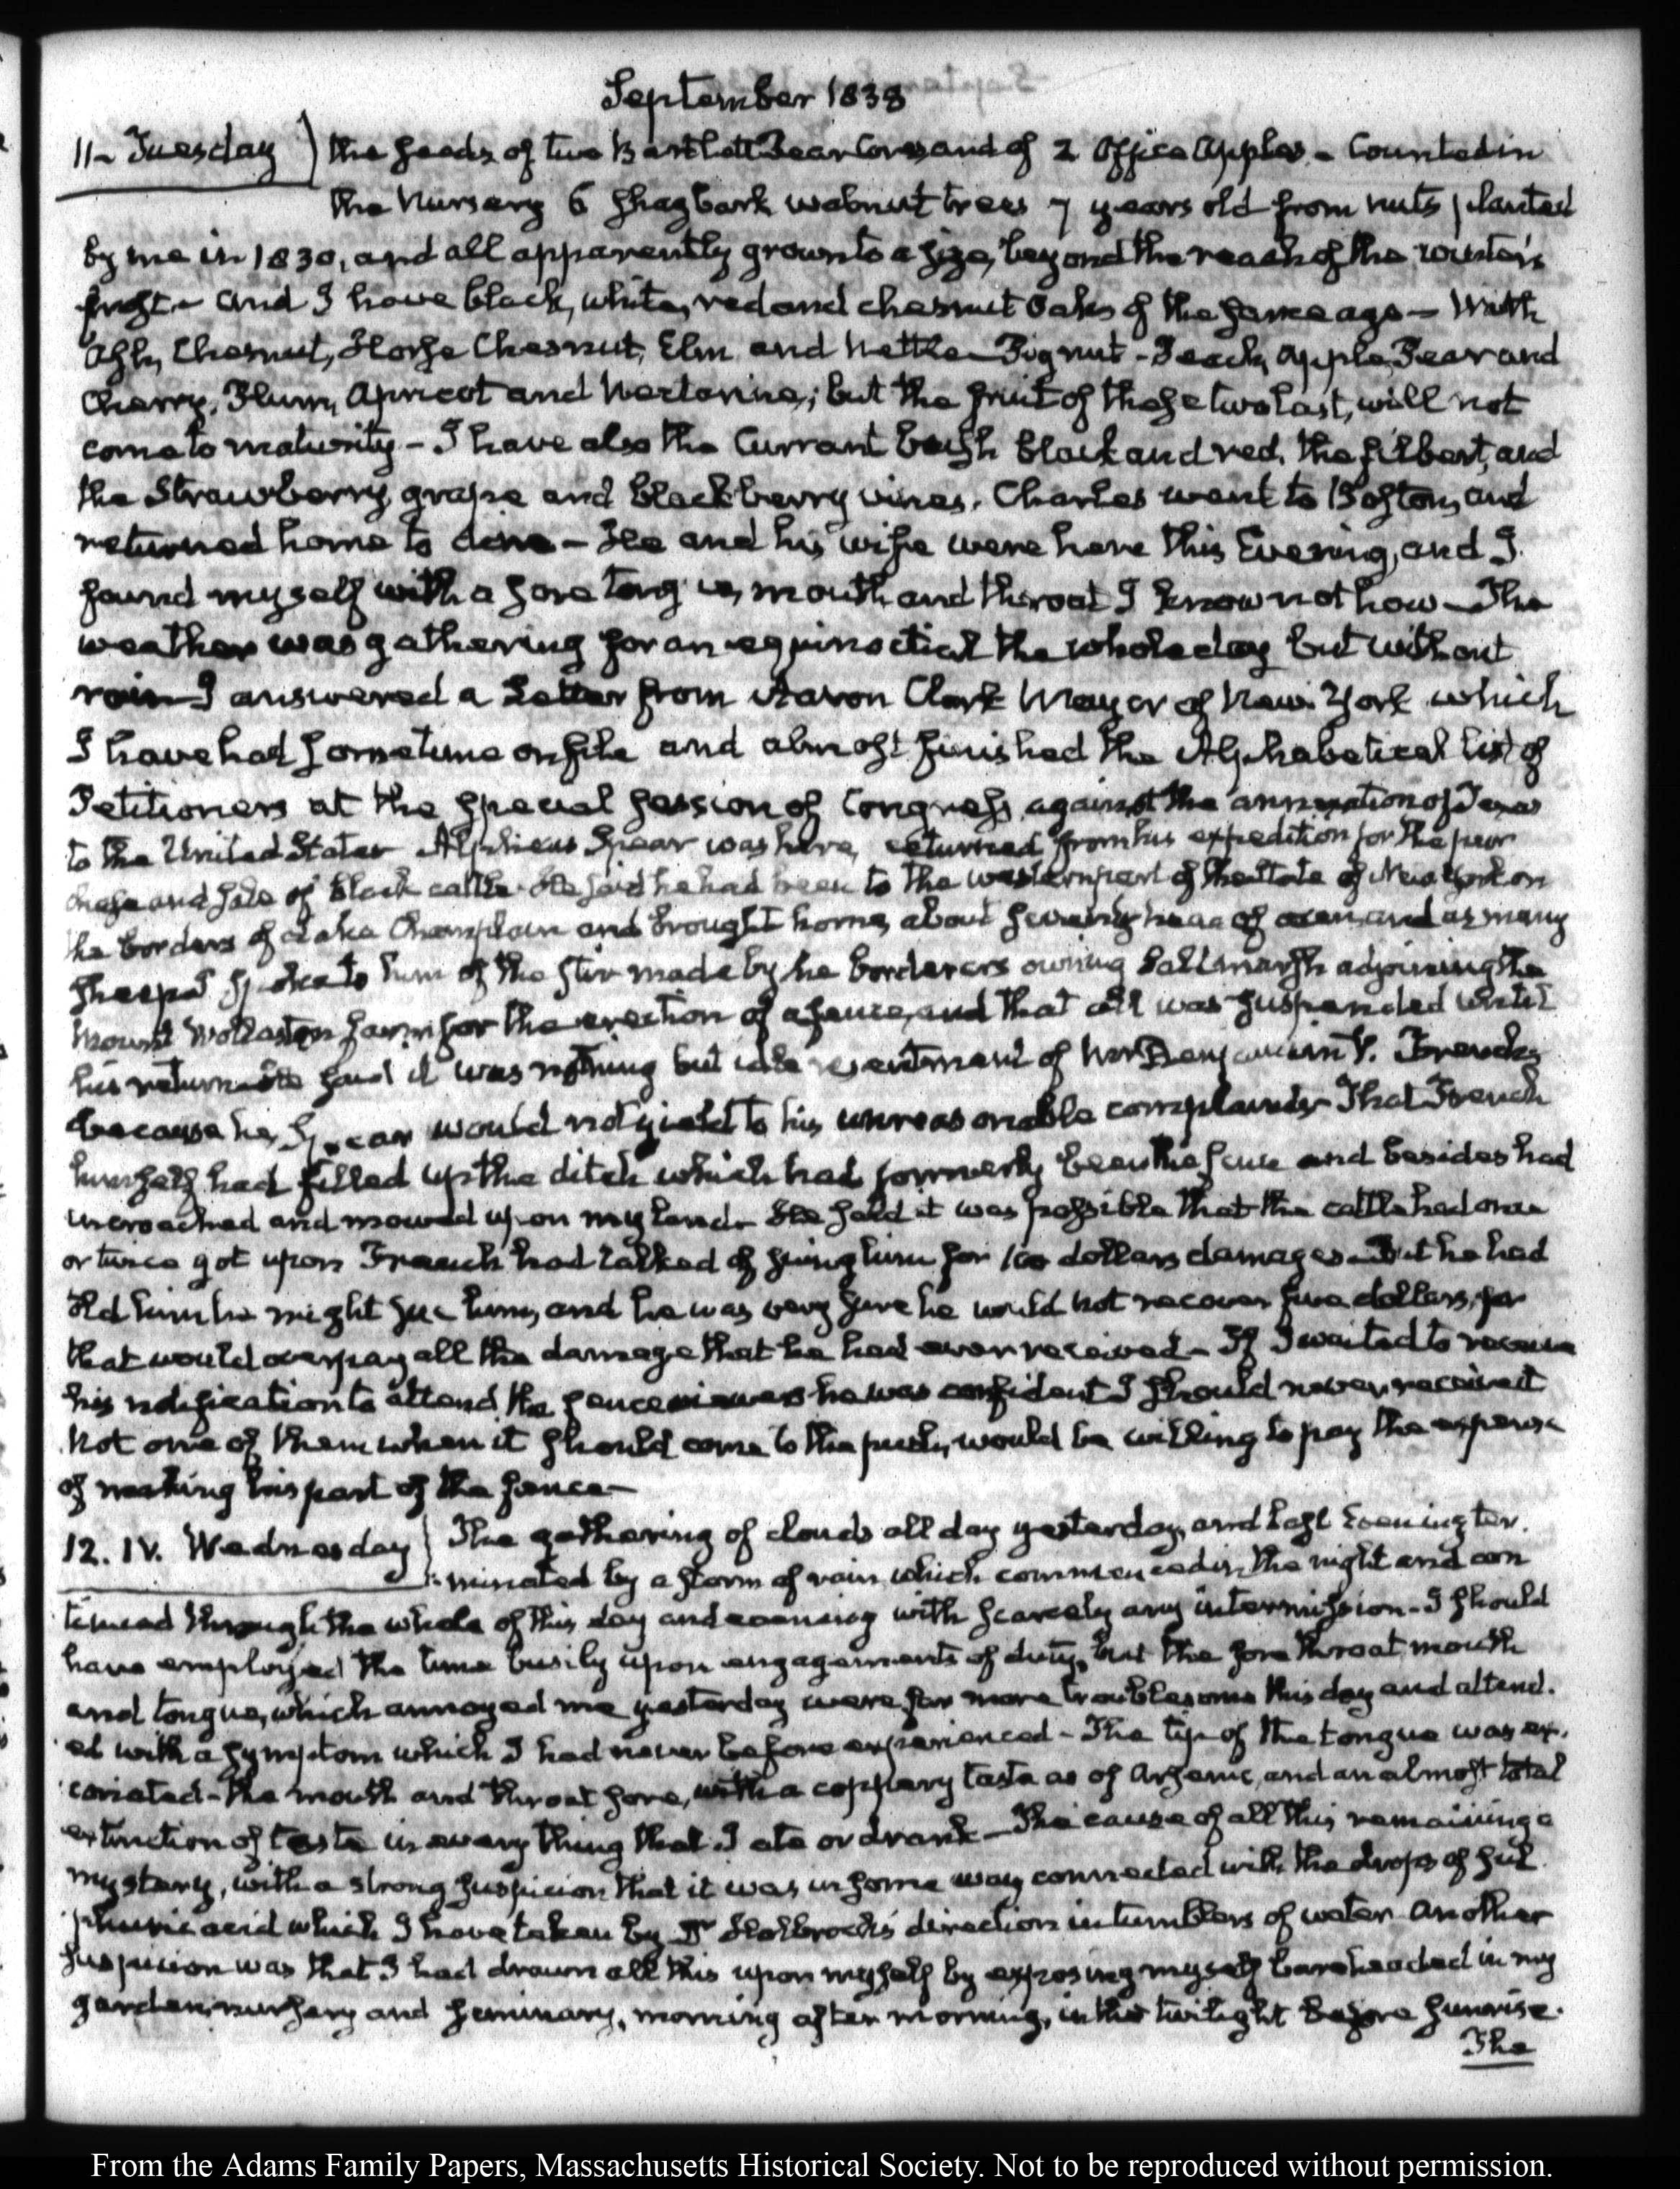 September 1838
11. Tuesday) the seeds of two Bartlett Pear Cores and of 2 Office Apples. Counted in
the Nursery 6 shagbark walnut trees 7 years old from nuts planted
by me in 1830, and all apparently grown to a size, beyond the reach of the winter's
frost. And I have black, white, red and chesnut Oaks of the same age – With
Ash, Chesnut, Horse Chesnut, Elm and Nettle – Pignut – Peach, Apple, Pear and
Cherry, Plum, Apricot and Nectarine; but the fruit of these two last, will not
come to maturity – I have also the Currant bush black and red, the filbert, and
the Strawberry, grape and blackberry vines. Charles went to Boston, and
returned home to dine – He and his wife were here this Evening, and I
found myself with a sore tongue, mouth and throat I know not how – The
weather was gathering for an equinoctial the whole day but without
rain – I answered a Letter from Aaron Clark Mayor of New York which
I have had some time on file and almost finished the Alphabetical list of
Petitioners at the special session of Congress against the annexation of Texas
to the United States Alpheus Spear was here, returned from his expedition for the pur
chase and sale of black cattle. He said he had been to the western part of the State of New York on
the borders of Lake Champlain and brought home, about seventy head of oxen, and as many
sheep I spoke to him of the stir made by the borderers owning Saltmarsh adjoining the
Mount Wollaston farm for the erection of a fence, and that all was suspended until
his return – He said it was nothing but idle resentment of Mr Benjamin V. French,
because he, Spear would not yield to his unreasonable complaints – That French
himself had filled up the ditch which had formerly been the fence and besides had
encroached and mowed upon my land. He said it was possible that the cattle had once
or twice got upon French had talked of suing him for 100 dollars damages – But he had
told him he might sue him, and he was very sure he would not recover five dollars, for
that would overpay all the damage that he had ever received – If I waited to receive
his notification to attend the fenceviewers he was confident I should never receive it
Not one of them when it should come to the push, would be willing to pay the expense
of making his part of the fence –
12. IV. Wednesday) The gathering of clouds all day yesterday, and last Evening ter.
:minated by a storm of rain, which commenced in the night and con
tinued through the whole of this day and evening with scarcely any intermission – I should
have employed the time busily upon engagements of duty, but the sore throat, mouth
and tongue, which annoyed me yesterday were far more troublesome this day and attend.
ed with a symptom which I had never before experienced – The tip of the tongue was ex.
coriated – the mouth and throat sore, with a coppery taste as of Arsenic, and an almost total
extinction of taste in every thing that I ate or drank – The cause of all this remaining a
mystery, with a strong suspicion that it was in some way connected with the drops of sul
:phuric acid which I have taken by Dr Holbrook's direction in tumblers of water. Another
suspicion was that I had drawn all this upon myself by exposing myself bareheaded in my
garden, nursery and seminary, morning after morning, in the twilight before sunrise.
The
From the Adams Family Papers, Massachusetts Historical Society. Not to be reproduced without permission.